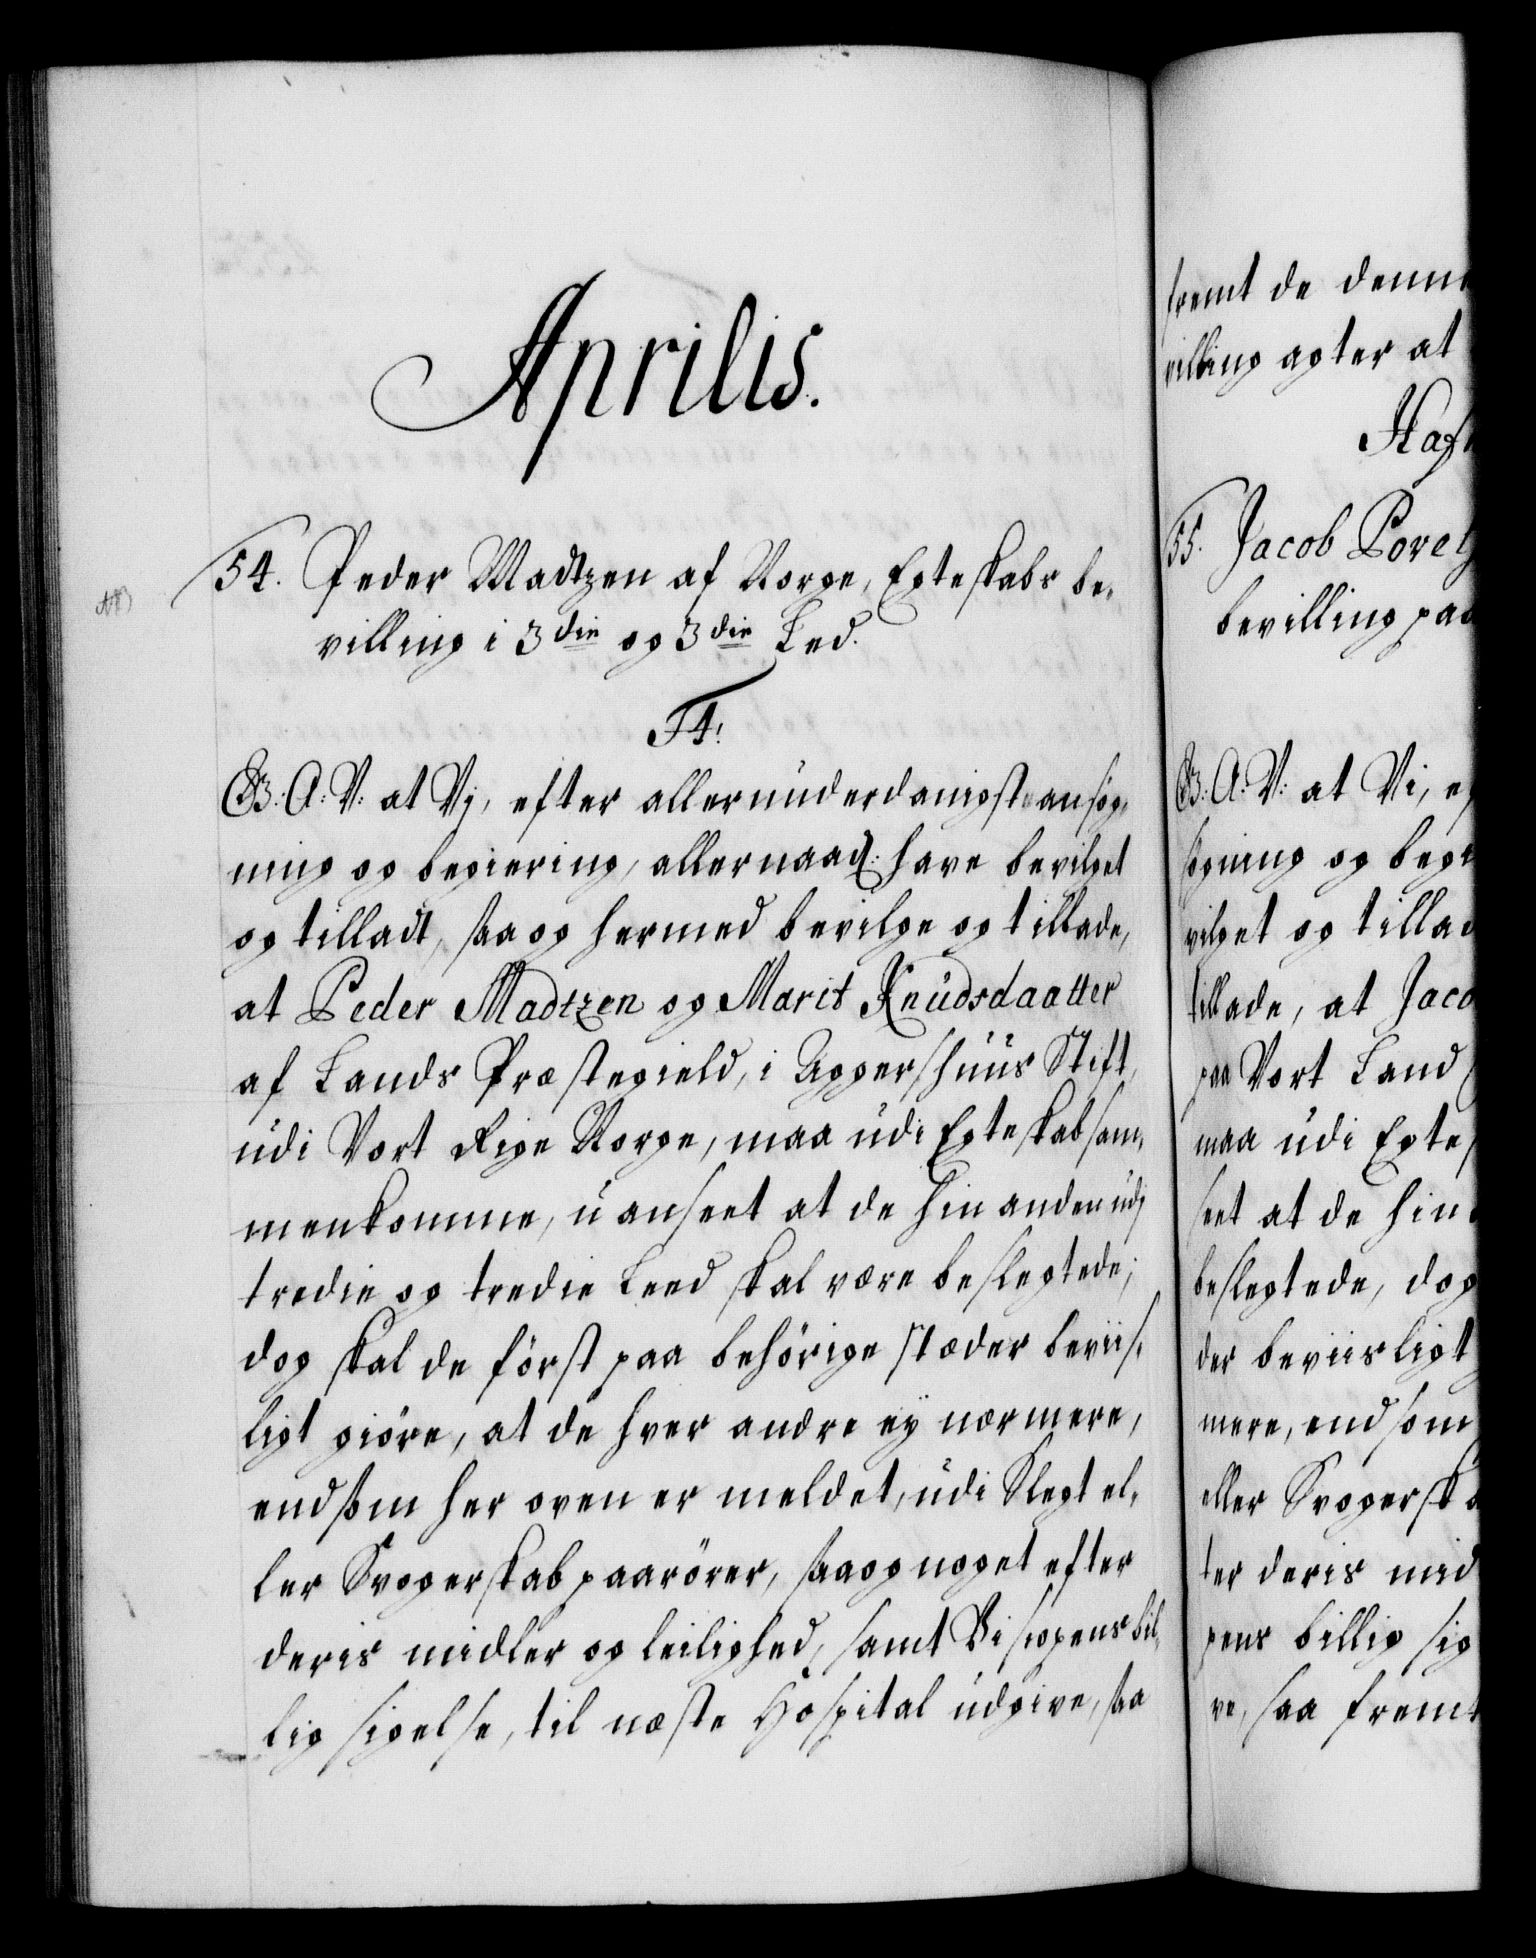 Aprilis.
54. Peder Madtzen af Norge, Egteskabs be-
villing i 3die og 3die Led.
F4!
G.B. A: V: at Vj, efter allerunderdanigst ansøg-
ning og begiering, allernaad: have bevilget
og tilladt, saa og hermed bevilge og tillade,
at Peder Madtzen og Marit Knudsdaatter
af Lands Præstegield, i Aggershuus Stift,
udi Vort Rige Norge, maa udi Egteskab sam-
menkomme, uanseet at de hin anden udj
tredie og tredie Leed skal være beslegtede;
dog skal de først paa behörige stæder beviis-
ligt giöre, at de hver andre ey nærmere,
end som her oven er meldet, udi Slegt el-
ler Svogerskab paarörer, saa og noget efter
deris midler og leilighed, samt Biscopens bil-
lig sigelse, til næste Hospital udgive, saa
fremt de denne
villing agter at
Haf
55. Jacob Povel
bevilling paa
G.B: A: V: at Vi, ef
søgning og begi
vilget og tillad
tillade, at Jaco
paa Vort Land
maa udi Egtes
seet at de hin
beslegtede, dog
der beviisligt
mere, end som
eller Svogerska
ter deris mid
pens billig sig
ve, saa fremt